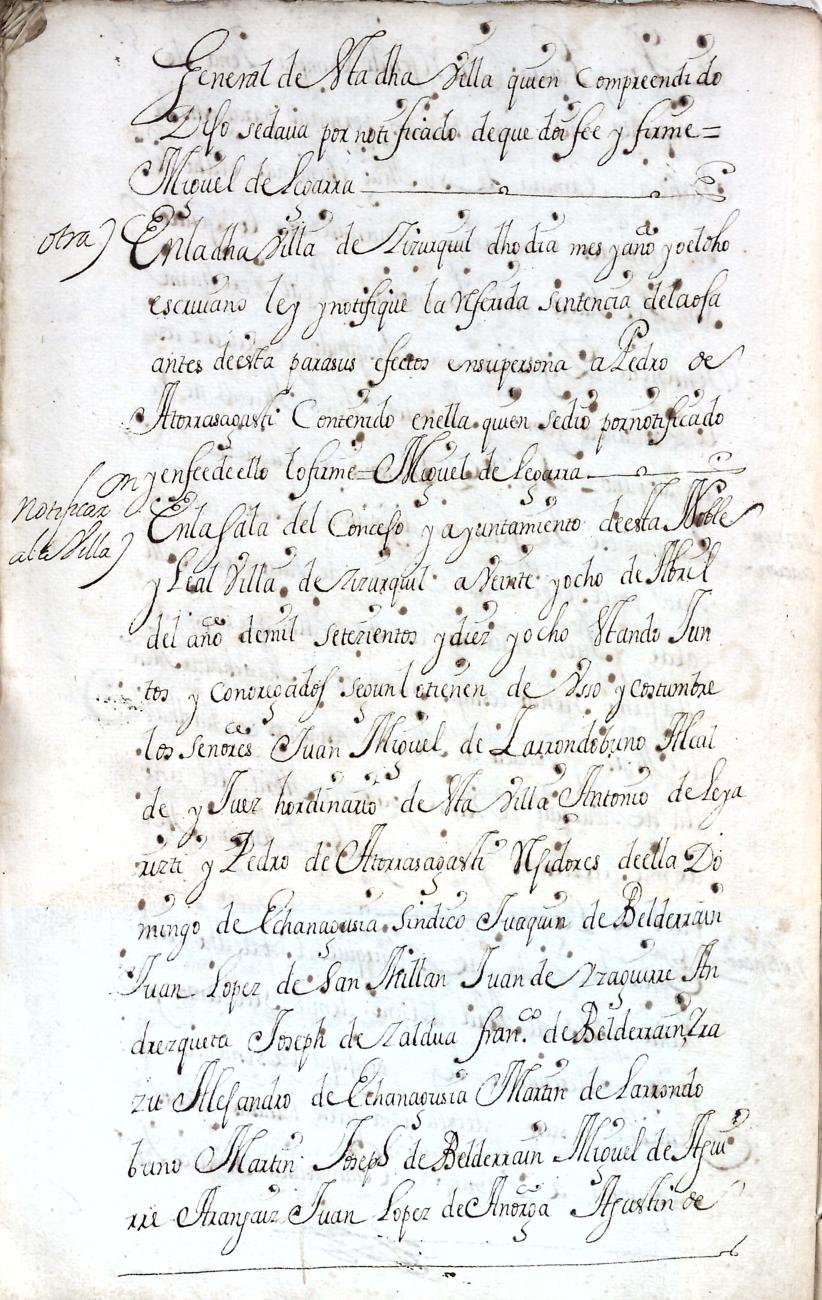 General de Vta dha Villa quien Compreendido
Dijo sedaua por notificado de que doi fee y firme =
Miguel de Legarra
otra) En la dha Villa de Zizurquil dho dia mes y año yo el dho
escriuano ley y notifique la Referida Sentencia de la ofa
antes de esta para sus efectos en su persona a Pedro de
Atorrasagasti Contenido en ella quien se dio por notificado
y en fee de ello lo firme = Miguel de Legarra
notificaz.on
a la Villa) En la Sala del Concejo y ayuntamiento de esta Noble
y Leal Villa de Zizurquil a Veinte y ocho de Abril
del año de mil setezientos y diez y ocho Vtando Jun
tos y congregados segun lo tienen de Vsso y costumbre
los Señores Juan Miguel de Larrondobuno Alcal
de y Juez hordinario de Vta Villa Antonio de Leya
rizti y Pedro de Atorrasagasti Rejidores de ella Do
mingo de Echanagusia Sindico Juaquin de Belderrain
Juan Lopez de San Millan Juan de Yzaguirre An
drezqueta Joseph de Zaldua fran.co de Belderrain Yra
zu Alejandro de Echanagusia Martin de Larrondo
buno Martin Joseph de Belderrain Miguel de Aguir
rre Aranjaiz Juan Lopez de Anorga Agustin de